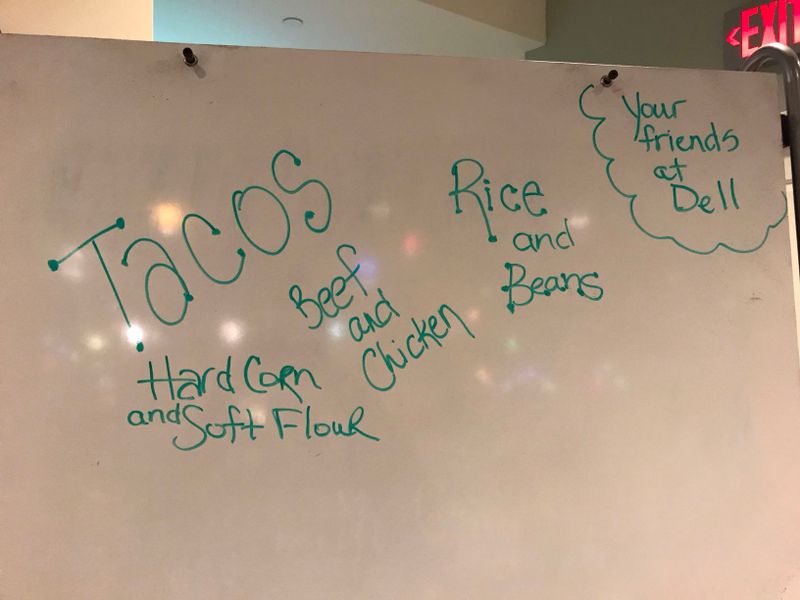 TACOS
Beef
and
Chicken
Hard Corn
and Soft Flour
Rice
and
Beans
Your
friends
at
Dell
EXIT